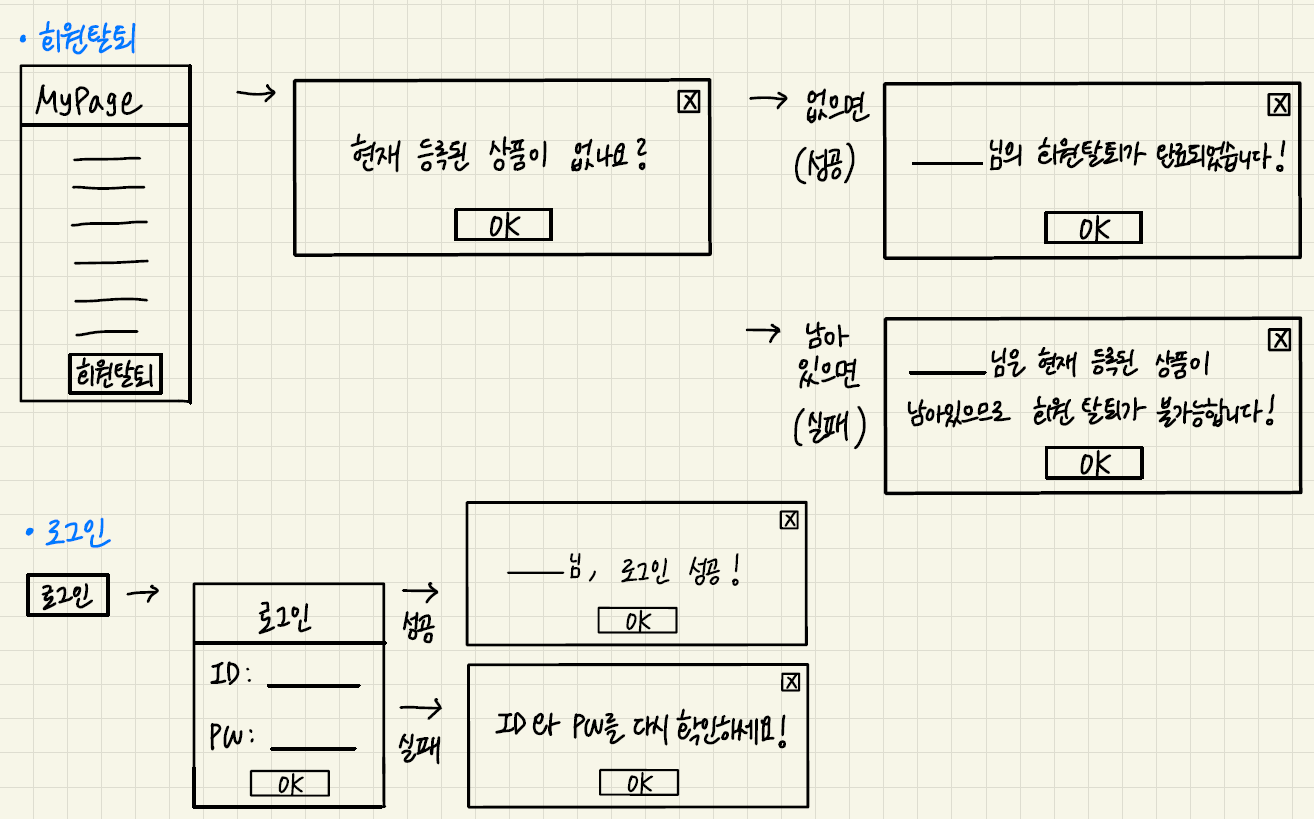 • 회원탈퇴
MyPage
회원탈퇴
→
X
현재 등록된 상품이 없나요?
OK
→ 없으면
(성공)
X
_____님의 회원탈퇴가 완료되었습니다!
OK
→ 남아
있으면
(실패)
X
_____님은 현재 등록된 상품이
남아있으므로 회원 탈퇴가 불가능합니다!
OK
• 로그인
로그인 →
로그인
ID: _____
PW: _____
OK
→
성공
X
_____님, 로그인 성공!
OK
→
실패
X
ID와 PW를 다시 확인하세요!
OK